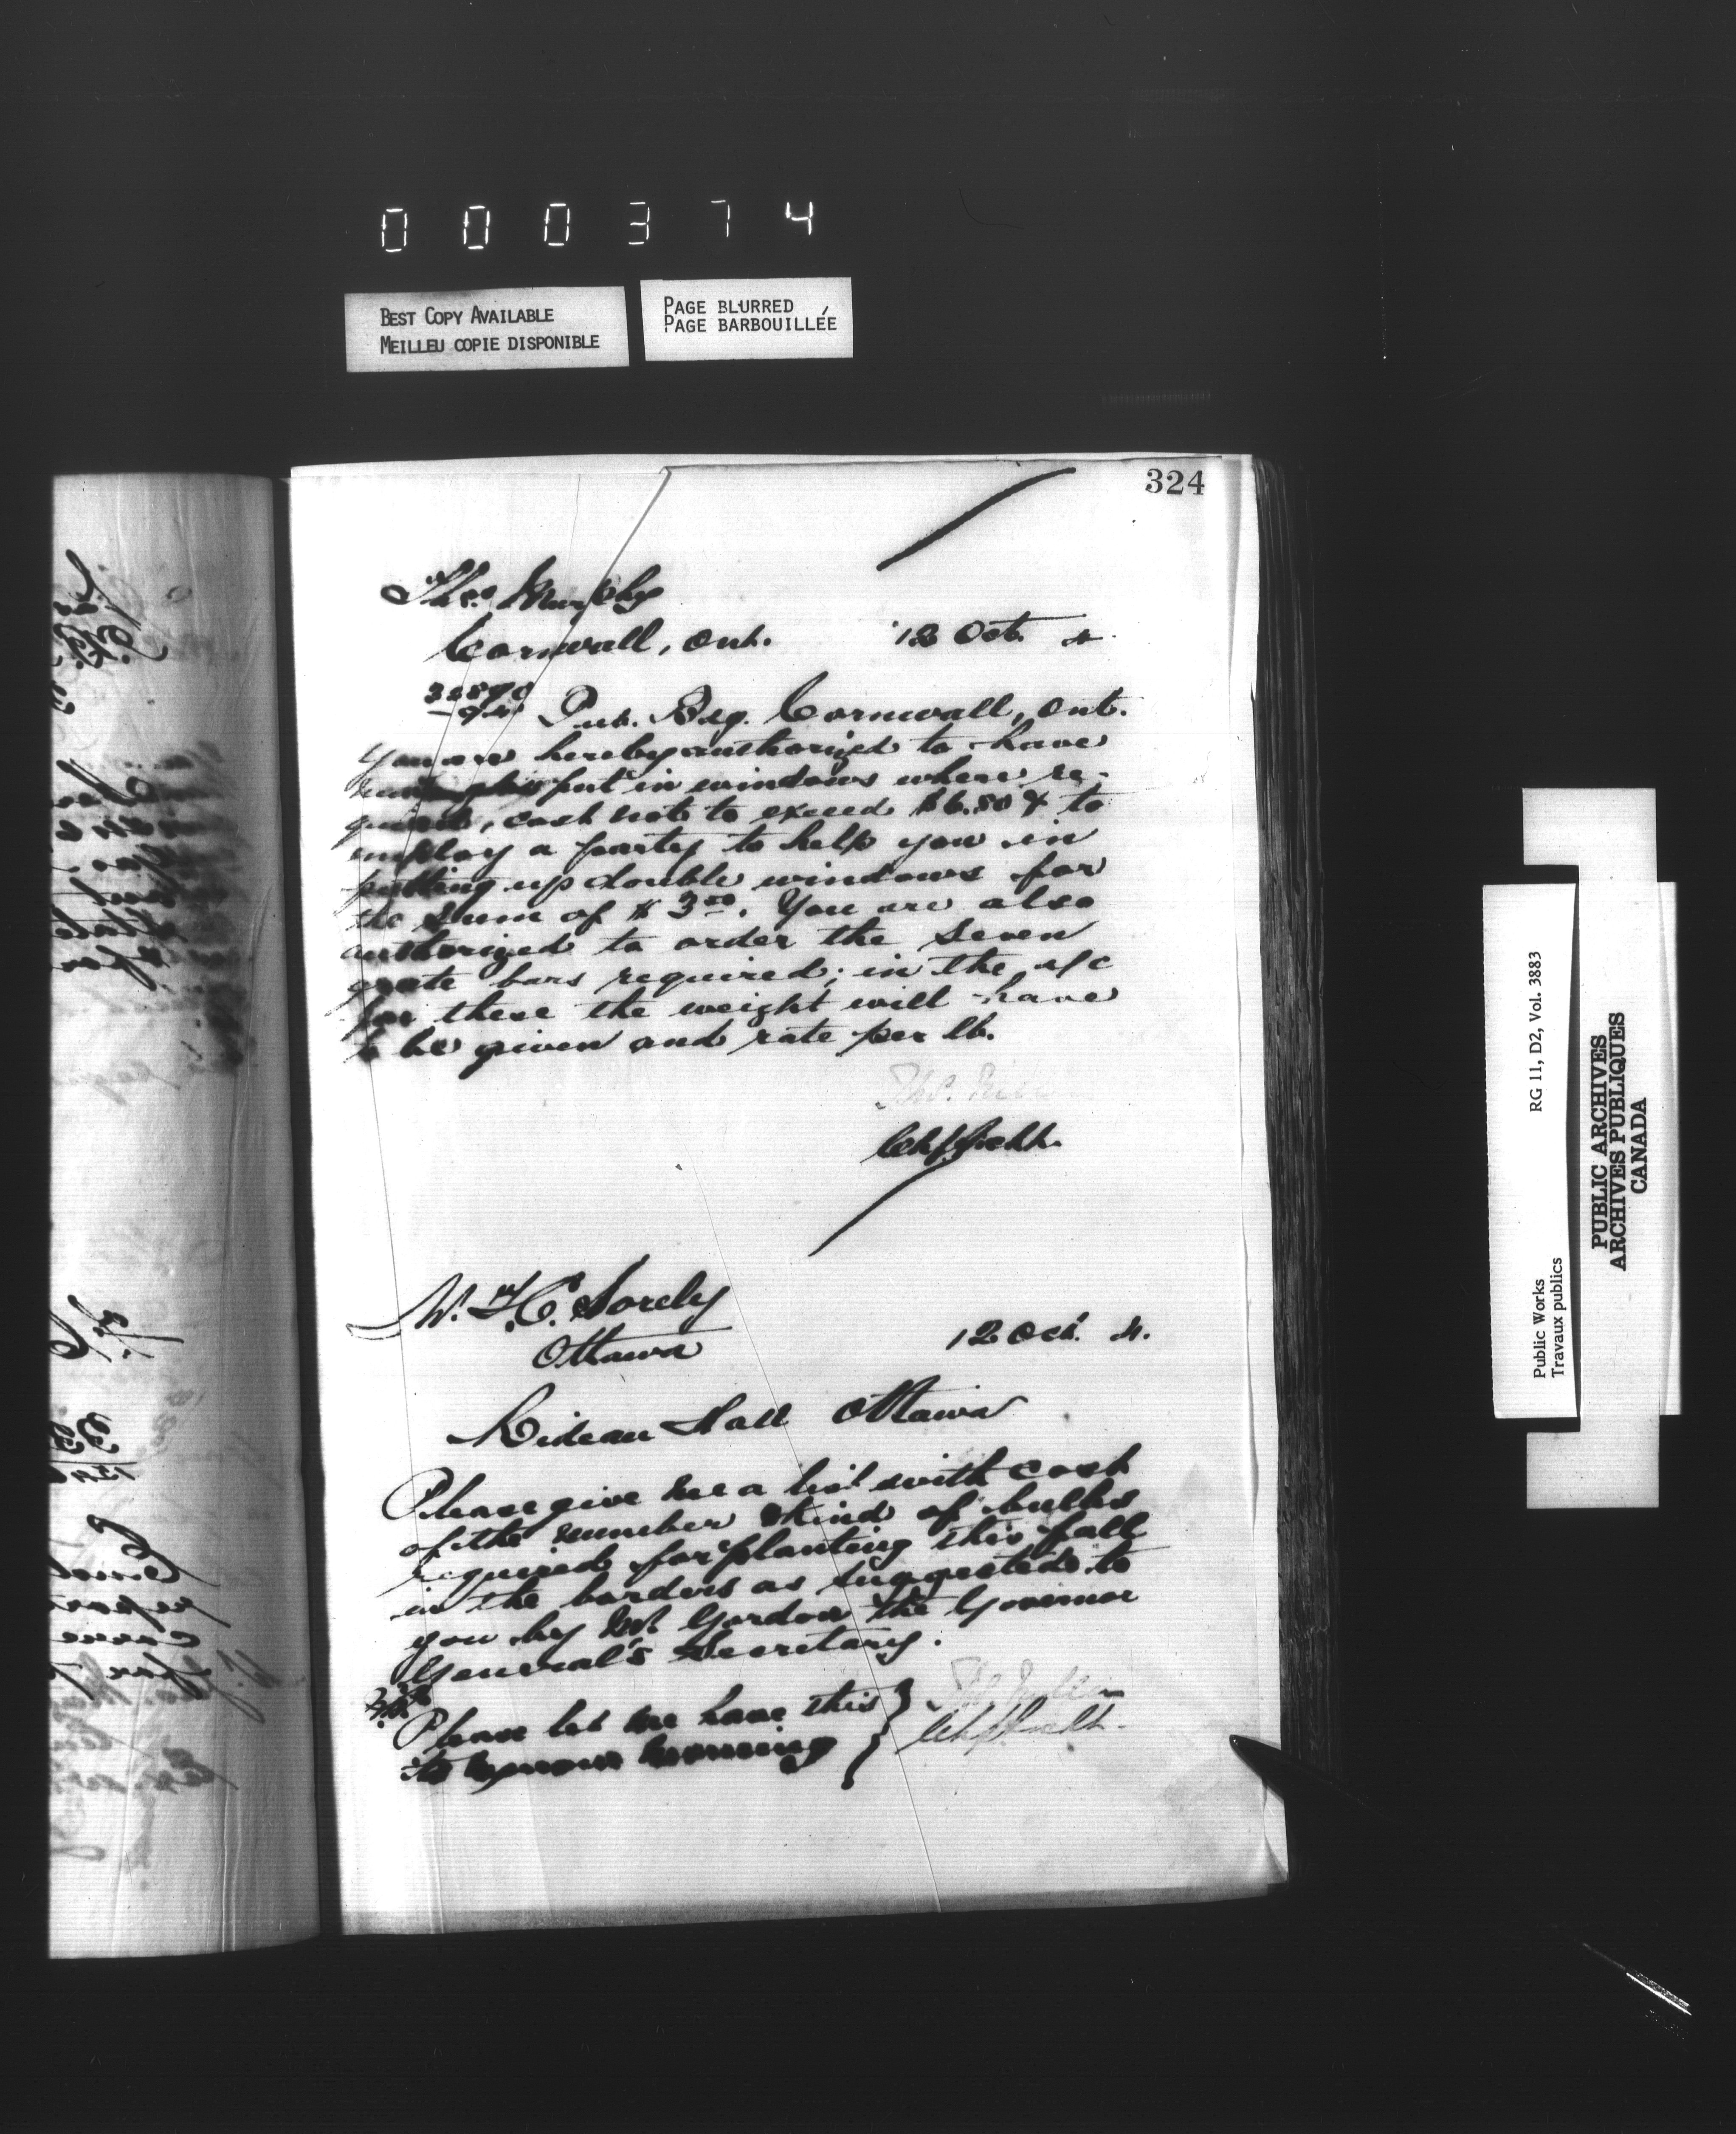 000374
BEST COPY AVAILABLE
MEILLEU COPIE DISPONIBLE
PAGE BLURRED
PAGE BARBOUILLÉE
324
Thos. Murphy
Cornwall, Ont. 12 Oct. 4.
Pub. Bdg. Cornwall, Ont.
You are hereby authorized to have
put in windows where re-
quired, cost not to exceed $6.50 & to
employ a party to help you in
putting up double windows for
the sum of $3.00. You are also
authorized to order the seven
grate bars required; in the a/c
for these the weight will have
to be given and rate per lb.
Thos.
Chf Archt.
W. H. C. Sorely
Ottawa 12 Oct. 4.
Rideau Hall Ottawa
Please give me a list with cost
of the number & kind of bulbs
required for planting this fall
in the borders as suggested to
you by Mr. Gordon the Governor
General's Secretary.
Please let me have this
to morrow morning
Chf Archt.
Public Works
Travaux publics
RG 11, D2, Vol. 3883
PUBLIC ARCHIVES
ARCHIVES PUBLIQUES
CANADA